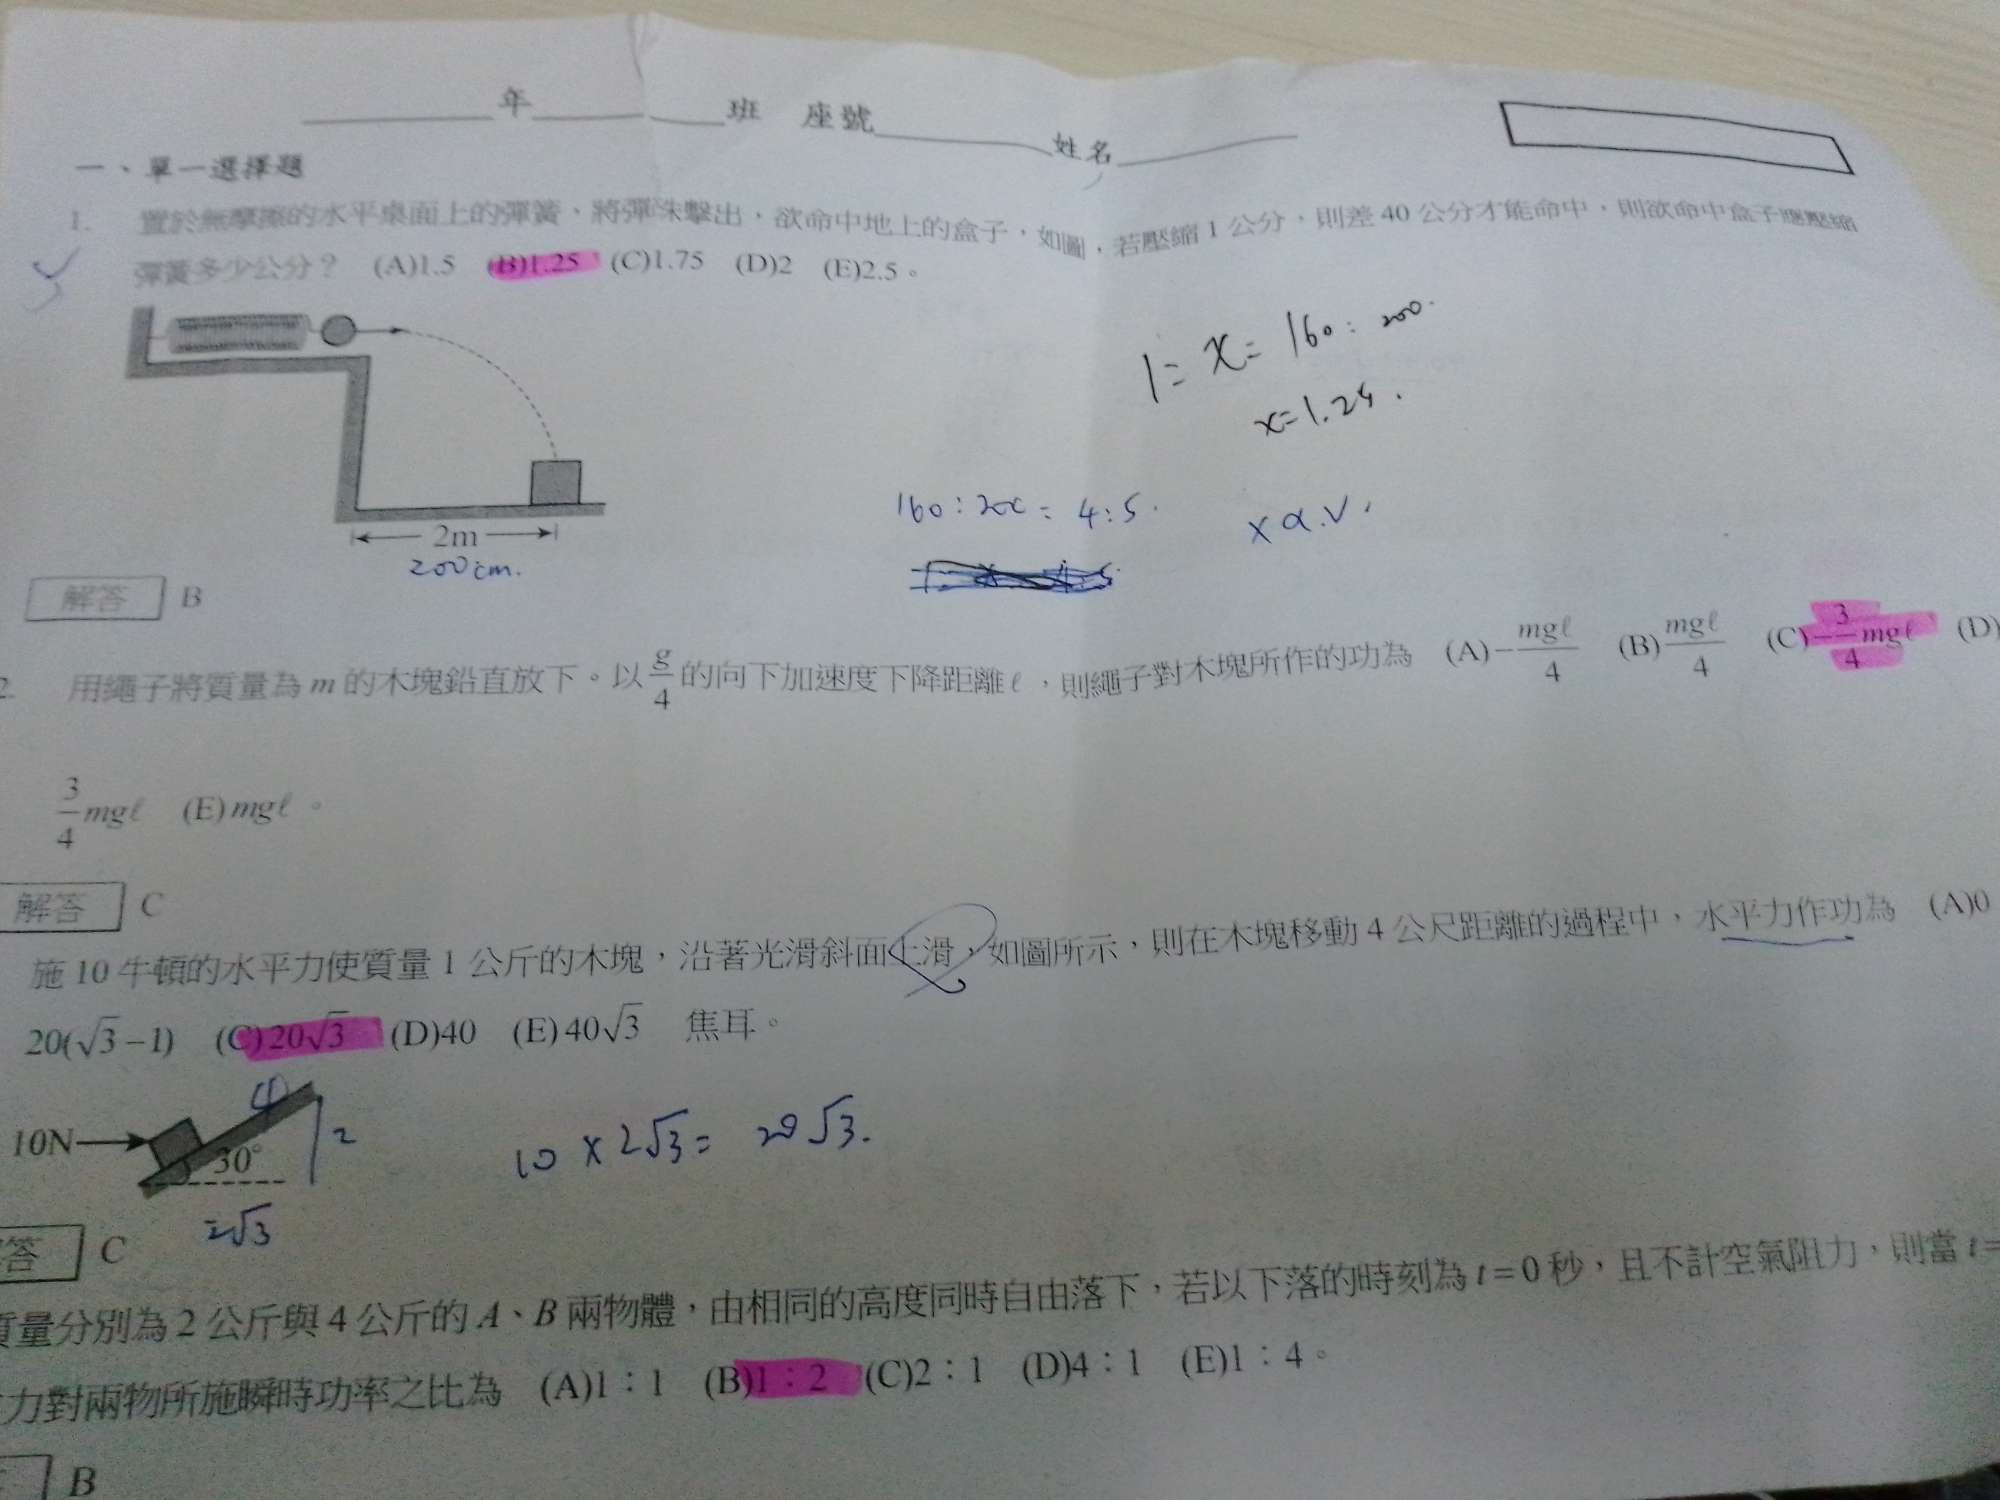 年 班 座號 姓名
一、單一選擇題
1. 置於無摩擦的水平桌面上的彈簧、將彈珠擊出，欲命中地上的盒子，如圖，若壓縮 1 公分，則差 40 公分才能命中，則欲命中盒子應壓縮
彈簧多少公分？ (A)1.5 (B)1.25 (C)1.75 (D)2 (E)2.5。
1 = x = 160 : 200.
x = 1.25.
160 : 200 = 4 : 5.
x α. V.
2m
200cm.
解答 B
2. 用繩子將質量為 m 的木塊鉛直放下。以 g/4 的向下加速度下降距離 ℓ，則繩子對木塊所作的功為 (A) -mgℓ/4 (B) mgℓ/4 (C) -3/4 mgℓ (D)
3/4 mgℓ (E) mgℓ。
解答 C
施 10 牛頓的水平力使質量 1 公斤的木塊，沿著光滑斜面上滑，如圖所示，則在木塊移動 4 公尺距離的過程中，水平力作功為 (A)0
20(√3 – 1) (C)20√3 (D)40 (E)40√3 焦耳。
4
10N 30° 2
10 × 2√3 = 20√3.
2√3
答 C
質量分別為 2 公斤與 4 公斤的 A、B 兩物體，由相同的高度同時自由落下，若以下落的時刻為 t = 0 秒，且不計空氣阻力，則當 t =
力對兩物所施瞬時功率之比為 (A)1：1 (B)1：2 (C)2：1 (D)4：1 (E)1：4。
B